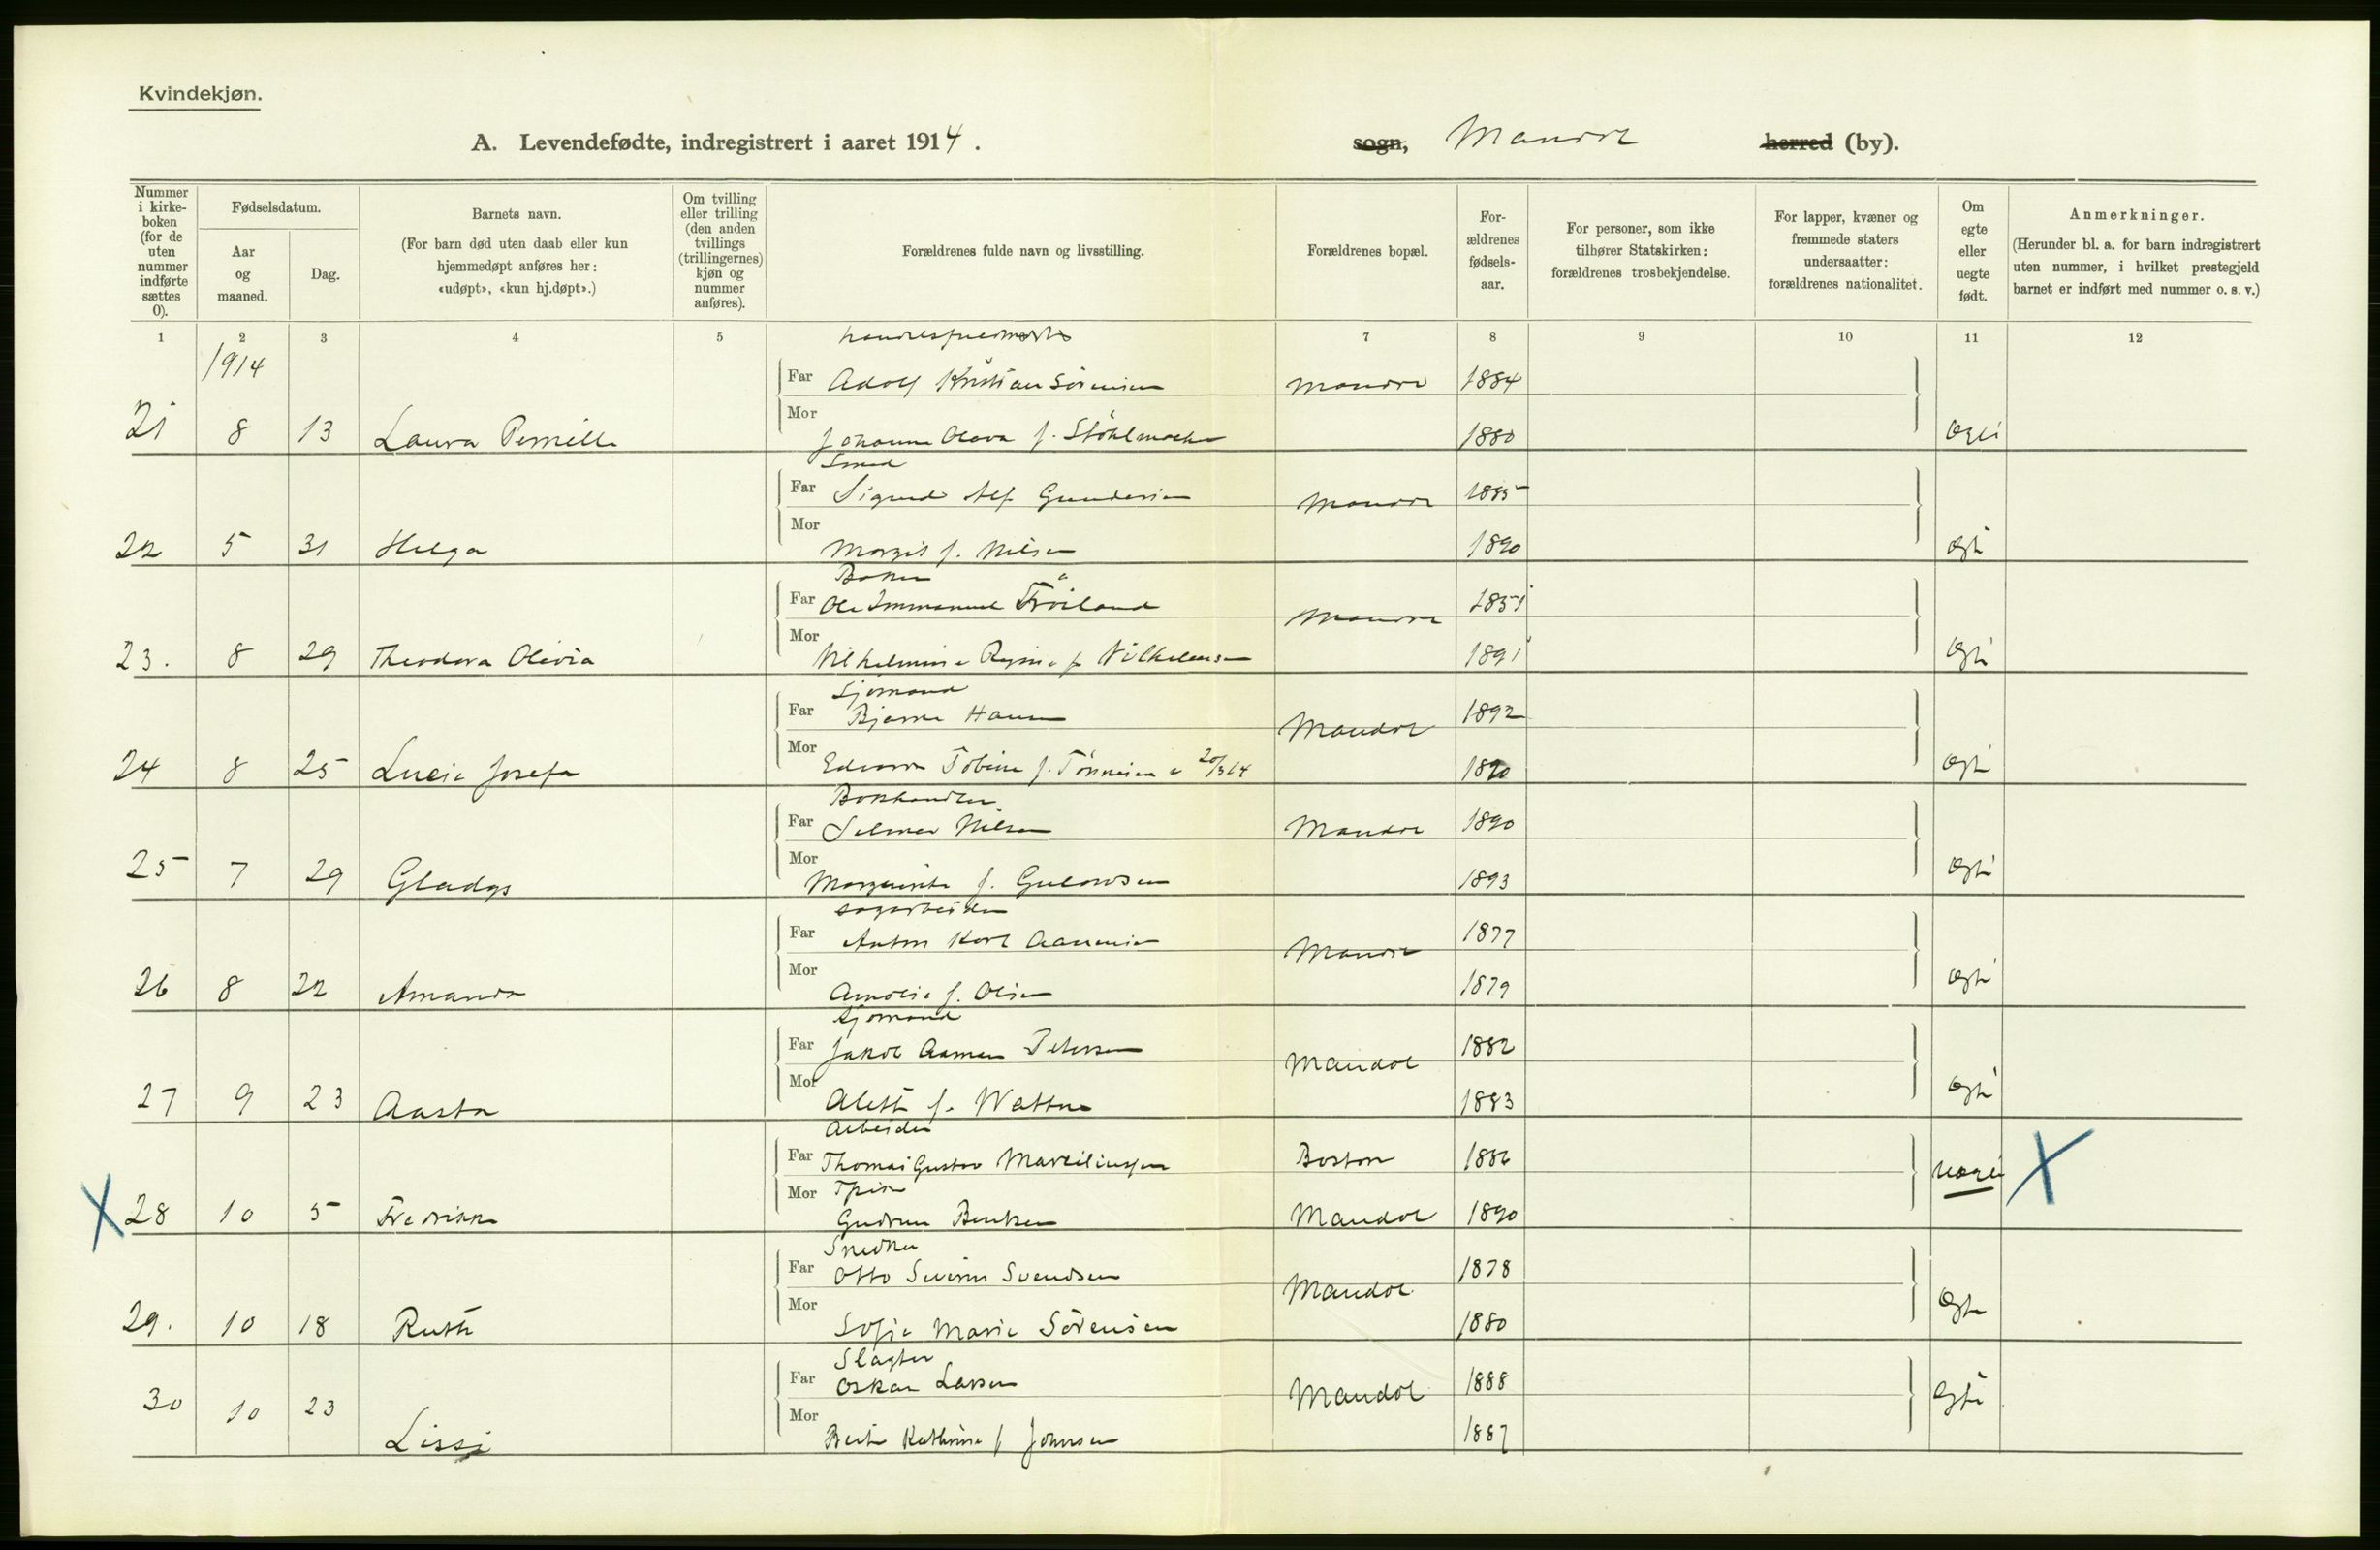 Kvindekjøn.
A. Levendefødte, indregistrert i aaret 1914.
sogn, Mandal herred (by).
Nummer i kirke-boken (for de uten nummer indførte sættes 0).
Fødselsdatum.
Aar og maaned.
Dag.
Barnets navn.
(For barn død uten daab eller kun hjemmedøpt anføres her: «udøpt», «kun hj.døpt».)
Om tvilling eller trilling (den anden tvillings (trillingernes) kjøn og nummer anføres).
Forældrenes fulde navn og livsstilling.
Forældrenes bopæl.
For-ældrenes fødsels-aar.
For personer, som ikke tilhører Statskirken: forældrenes trosbekjendelse.
For lapper, kvæner og fremmede staters undersaatter: forældrenes nationalitet.
Om egte eller uegte født.
Anmerkninger.
(Herunder bl. a. for barn indregistrert uten nummer, i hvilket prestegjeld barnet er indført med nummer o. s. v.)
1 2 3 4 5 7 8 9 10 11 12
1914
Far Adolf Kristian Sörensen Mandal 1884
21 8 13 Laura Pernille Mor Johanne Olava f. 1880 Egte
Smed
Far Sigurd Alf Gundersen Mandal 1885
22 5 31 Helga Mor Margit f. Nilsen 1890 Egte
Baker
Far Ole Immanuel Fröiland Mandal 1851
23. 8 29 Theodora Olivia Mor Vilhelmine Regine f. Vilhelmsen 1891 Egte
Sjömand
Far Bjarne Hansen Mandal 1892
24 8 25 Lucie Josefa Mor Edvarda Tobine f. Tönnesen 20/3 14 1890 Egte
Bokhandler
Far Selmer Nilsen Mandal 1890
25 7 29 Gladys Mor Margrethe f. Gulowsen 1893 Egte
Sagarbeider
Far Anton Karl Aanensen Mandal 1877
26 8 22 Amanda Mor Amalie f. Olsen 1879 Egte
Sjömand
Far Jakob Aamen Petersen Mandal 1882
27 9 23 Aasta Mor Alette f. Wattne 1883 Egte
Arbeider
Far Thomas Gustav Marciliussen Boston 1886 Uegte X
Mor Pike
X 28 10 5 Fredrikke Gudrun Bentsen Mandal 1890
Snedker
Far Otto Severin Svendsen Mandal 1878
29. 10 18 Ruth Mor Sofie Marie Sörensen 1880 Egte
Slagter
Far Oskar Larsen Mandal 1888
30 10 23 Lissi Mor Berte Kathrine f. Johnsen 1887 Egte